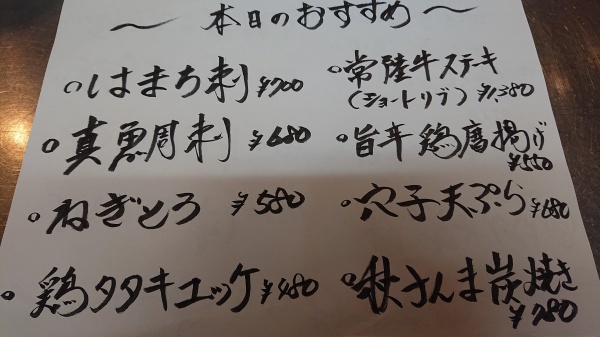 〜 本日のおすすめ 〜
○はまち刺 ¥700
○真鯛刺 ¥680
○ねぎとろ ¥580
○鶏タタキユッケ ¥480
○常陸牛ステキ
(ショートリブ) ¥1,380
○旨辛鶏唐揚げ
¥550
○穴子天ぷら ¥680
○秋さんま炭焼き
¥780